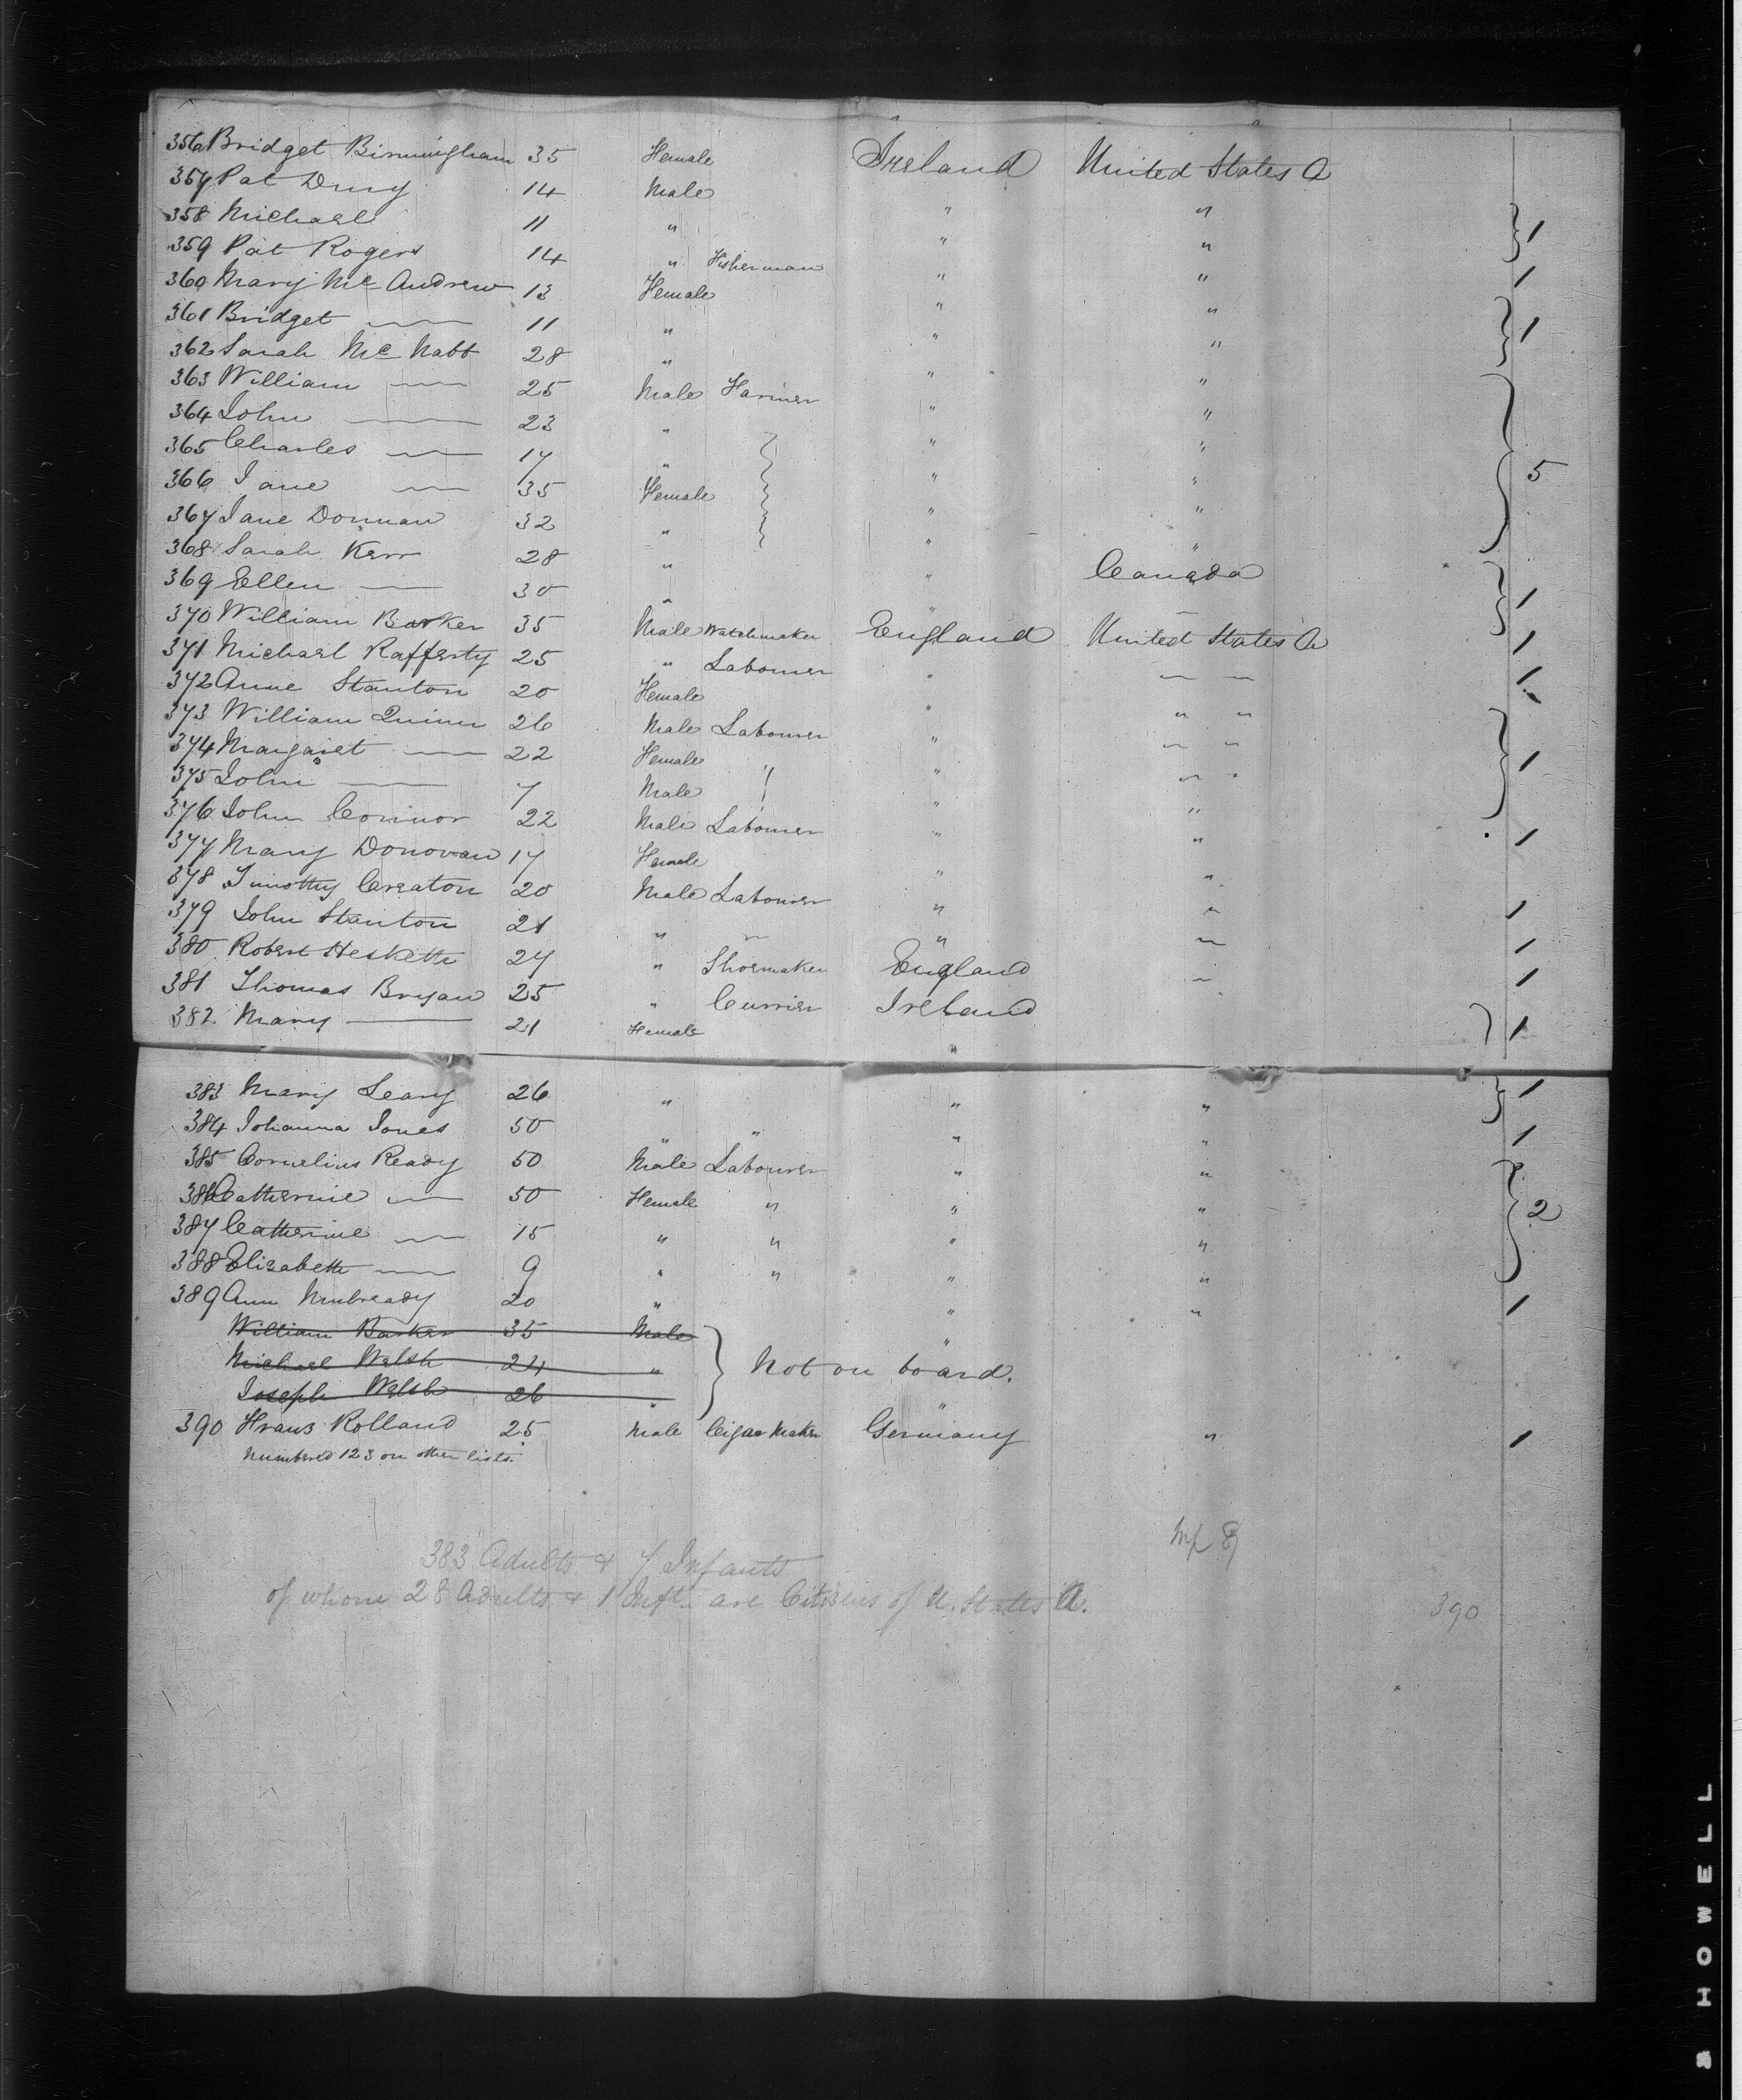 356 Bridget Birmingham 35 Female Ireland United States A
357 Pat Drury 14 Male " "
358 Michael 11 " " " 1
359 Pat Rogers 14 " Fisherman " " 1
360 Mary McAndrew 13 Female " "
361 Bridget —— 11 " " " 1
362 Sarah McNabb 28 " " "
363 William —— 25 Male Farmer " "
364 John —— 23 " " "
365 Charles —— 17 " " " 5
366 Jane —— 35 Female " "
367 Jane Dornan 32 " " "
368 Sarah Kerr 28 " " Canada
369 Ellen —— 30 " " — 1
370 William Barker 35 Male Watchmaker England United States A 1
371 Michael Rafferty 25 " Labourer " — — 1
372 Anne Stanton 20 Female " " "
373 William Quinn 26 Male Labourer " " "
374 Margaret —— 22 Female " " " 1
375 John —— 7 Male " "
376 John Connor 22 Male Labourer " " 1
377 Mary Donovan 17 Female " "
378 Timothy Creaton 20 Male Labourer " " 1
379 John Stanton 21 " " " " 1
380 Robert Hesketh 27 " Shoemaker England " 1
381 Thomas Bryan 25 " Currier Ireland
382 Mary —— 21 Female " 1
383 Mary Leary 26 " " " 1
384 Johanna Jones 50 " " " " 1
385 Cornelius Ready 50 Male Labourer " "
386 Catherine —— 50 Female " " " 2
387 Catherine —— 15 " " " "
388 Elizabeth —— 9 " " " "
389 Ann Mulready 20 " " " 1
William Barker 35 Male "
Michael Walsh 24 " Not on board.
Joseph Walsh 26 " "
390 Franz Rolland 25 Male Cigar Maker Germany " 1
Numbered 123 on other lists.
383 Adults & 7 Infants
of whom 28 Adults & 1 Inft. are Citizens of U. States A.
390
S HOWELL